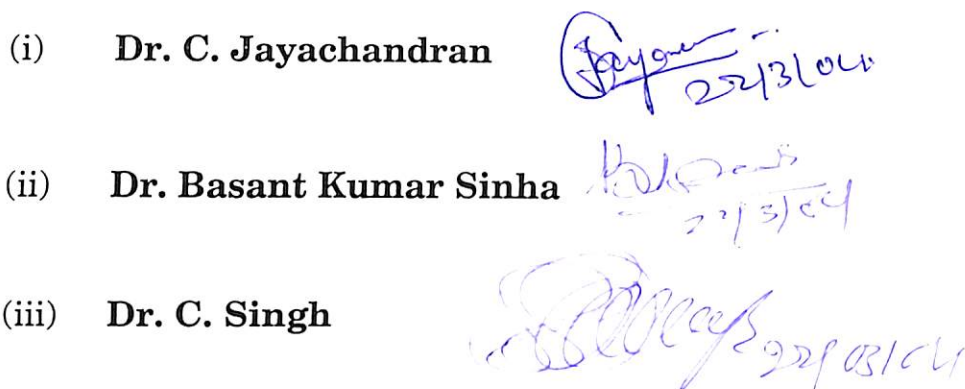 (i) Dr. C. Jayachandran
22/3/04
(ii) Dr. Basant Kumar Sinha
22/3/04
(iii) Dr. C. Singh
22/03/04